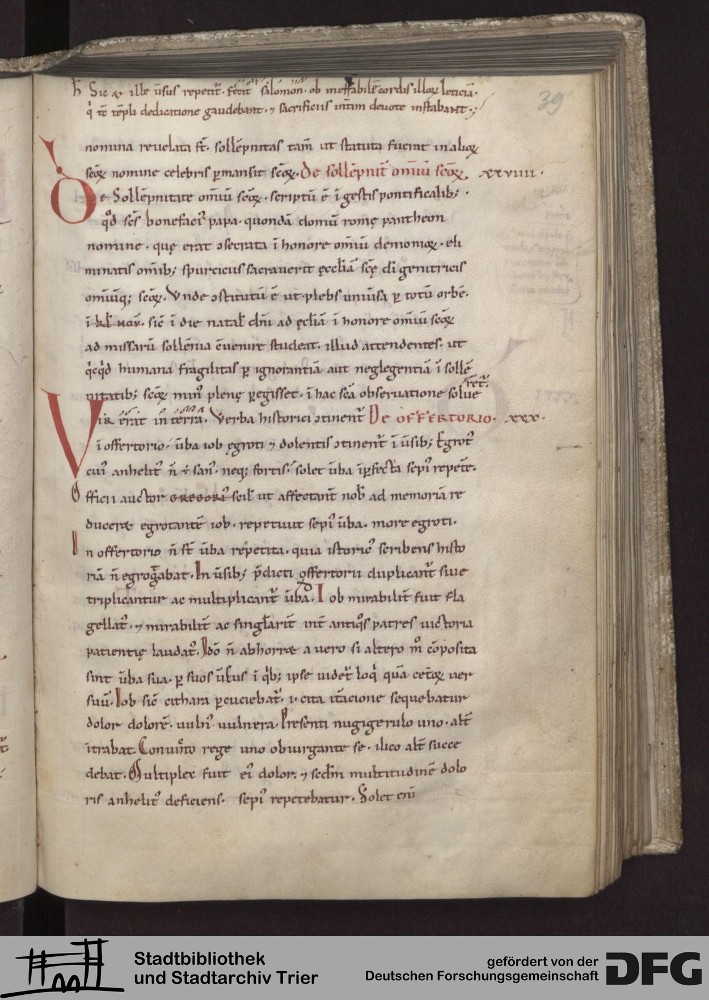 h Sic ⁊ ille usus repetit͛. fecit salomon. ob ineffabilē cordis illoꝝ leticiā.
q̇ tē tēpli dedicatione gaudebant. ⁊ sacrificiis intam devote instabant.
39
nomina revelata st̄. sollēpnitas tam̄ ut statuta fuerat in alioꝝ
scōꝝ nomine celebris ꝑmansit scōꝝ. De sollēpnit̄ omniū scōꝝ. xxviiii.
De Sollēpnitate omniū scōꝝ. scriptū ē ī gestis pontificalib;.
qd̄ scs̄ bonefaci᷒ papa. quondā domū romę pantheon
nomine. quę erat ɔsecrata ī honore omniū demonioꝝ. eli
minatis omib; spurciciis sacraverit ęcclīa scę̄ di genitricis
omiūq; scōꝝ. Unde ɔstitutū ē ut plebs univsa ꝑ totū orbē.
ī kl̄ nov. sic̄ ī die natal̄ dn̄i ad ęclīa ī honore omniū scōꝝ
ad missarū sollēnia ɔvenire studeat. illud attendentes. ut
qicqd humana fragilitas ꝑ ignorantiā aut neglegentiā ī sollē
nitatib; scōꝝ min᷒ plenę ꝑegisset. ī hac scā observatione solve
ret͛.
Vir erat in terra. Verba historici ɔtinent͛ De OFFERTORIO. xxx.
ī offertorio. ūba iob ęgroti ⁊ dolentis ɔtinent͛ ī ūsib; Egrot᷒
cui᷒ anhelit᷒ n̄ ē san᷒. neq; fortis. solet ūba īꝑfecta sepi᷒ repete.
Officii auctor GREGORI᷒ scil̄ ut affectant̄ nob̄ ad memoriā re
duceret egrotantē iob. repetivit sepi᷒ ūba. more egroti.
In offertorio n̄ st̄ ūba repetita. quia istoric᷒ scribens histo
riā n̄ egrotabat. In ūsib; p̄dicti offertorii duplicant͛ sive
triplicantur ac multiplicant͛ ūba. Iob mirabilit͛ fuit fla
gellat᷒. ⁊ mirabilit͛ ac singlarit͛ int͛ antiq᷒s patres victoria
patientię laudat᷒. Ido n̄ abhorret a vero si altero m̄ cōposita
sint ūba sua. ꝑ suos ūsus ī qib; ipse videt͛ loq̇ quā cetōꝝ ver
suū. Iob sic̄ cithara ꝑcuciebat͛. ī cita itacione sequebatur
dolor dolorē. vulni᷒ vulnera. Presenti nugigerulo uno. alt͛
itrabat. Conviuo rege uno obiurgante se. ilico alt͛ succe
debat. Multiplex fuit ei᷒ dolor. ⁊ secdm multitudinē dolo
ris anhelit᷒ deficiens. sepi᷒ repetebatur. Solet eni
Stadtbibliothek
und Stadtarchiv Trier
gefördert von der
Deutschen Forschungsgemeinschaft
DFG